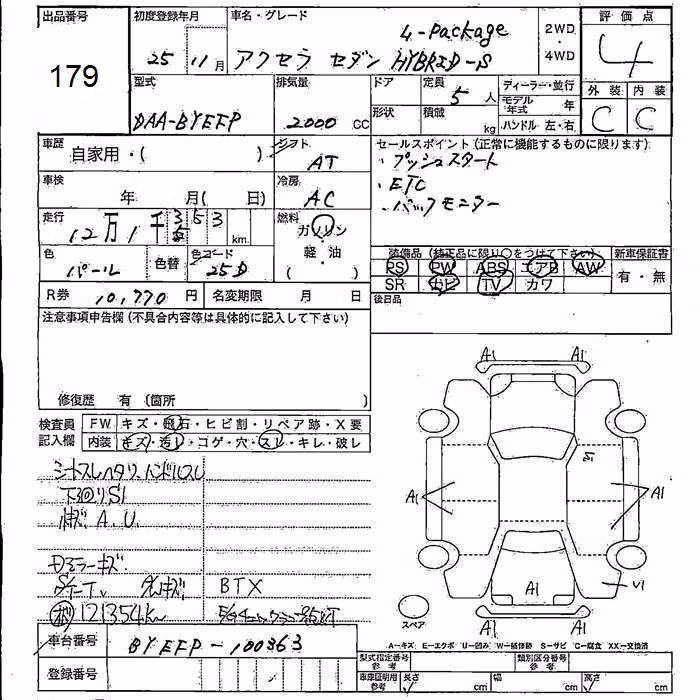 出品番号
179
初度登録年月
25 11月
車名・グレード
L-Package
アクセラ セダン HYBRID-S
2WD
・
4WD
評価点
4
外装 内装
C C
型式
DAA-BYEFP
排気量
2000 CC
ドア
形状
定員
5人
積載
kg
ディーラー・並行
モデル年式 年
ハンドル 左・右
車歴
自家用・( )
シフト
AT
セールスポイント(正常に機能するものに限ります)
・プッシュスタート
・ETC
・バックモニター
車検
年 月( 日)
冷房
AC
走行
12万1千353
km
燃料
ガソリン
・
軽・油
( )
色
パール
色替
色コード
25D
装備品(純正品に限り○をつけて下さい)
PS PW ABS エアB AW
SR ナビ TV カワ
新車保証書
有・無
R券 10,770 円
名変期限 月 日
後日品
注意事項申告欄(不具合内容等は具体的に記入して下さい)
修復歴 有(箇所 )
検査員
記入欄
FW キズ・飛石・ヒビ割・リペア跡・X要
内装 キズ・汚レ・コゲ・穴・スレ・キレ・破レ
シートスレヘタリ、ハンドルスレ
下回りS1
A.U
ミラーキズ
BTX
121354km
車台番号
BYEFP-100363
登録番号
A1 A1
S1
A1 A1
A1 U1
A1 A1
スペア
A－キズ E－エクボ U－凹み W－補修跡 S－サビ C－腐食 XX－交換済
型式指定番号
参考
類別区分番号
参考
車庫証明用
参考
長さ cm
幅 cm
高さ cm